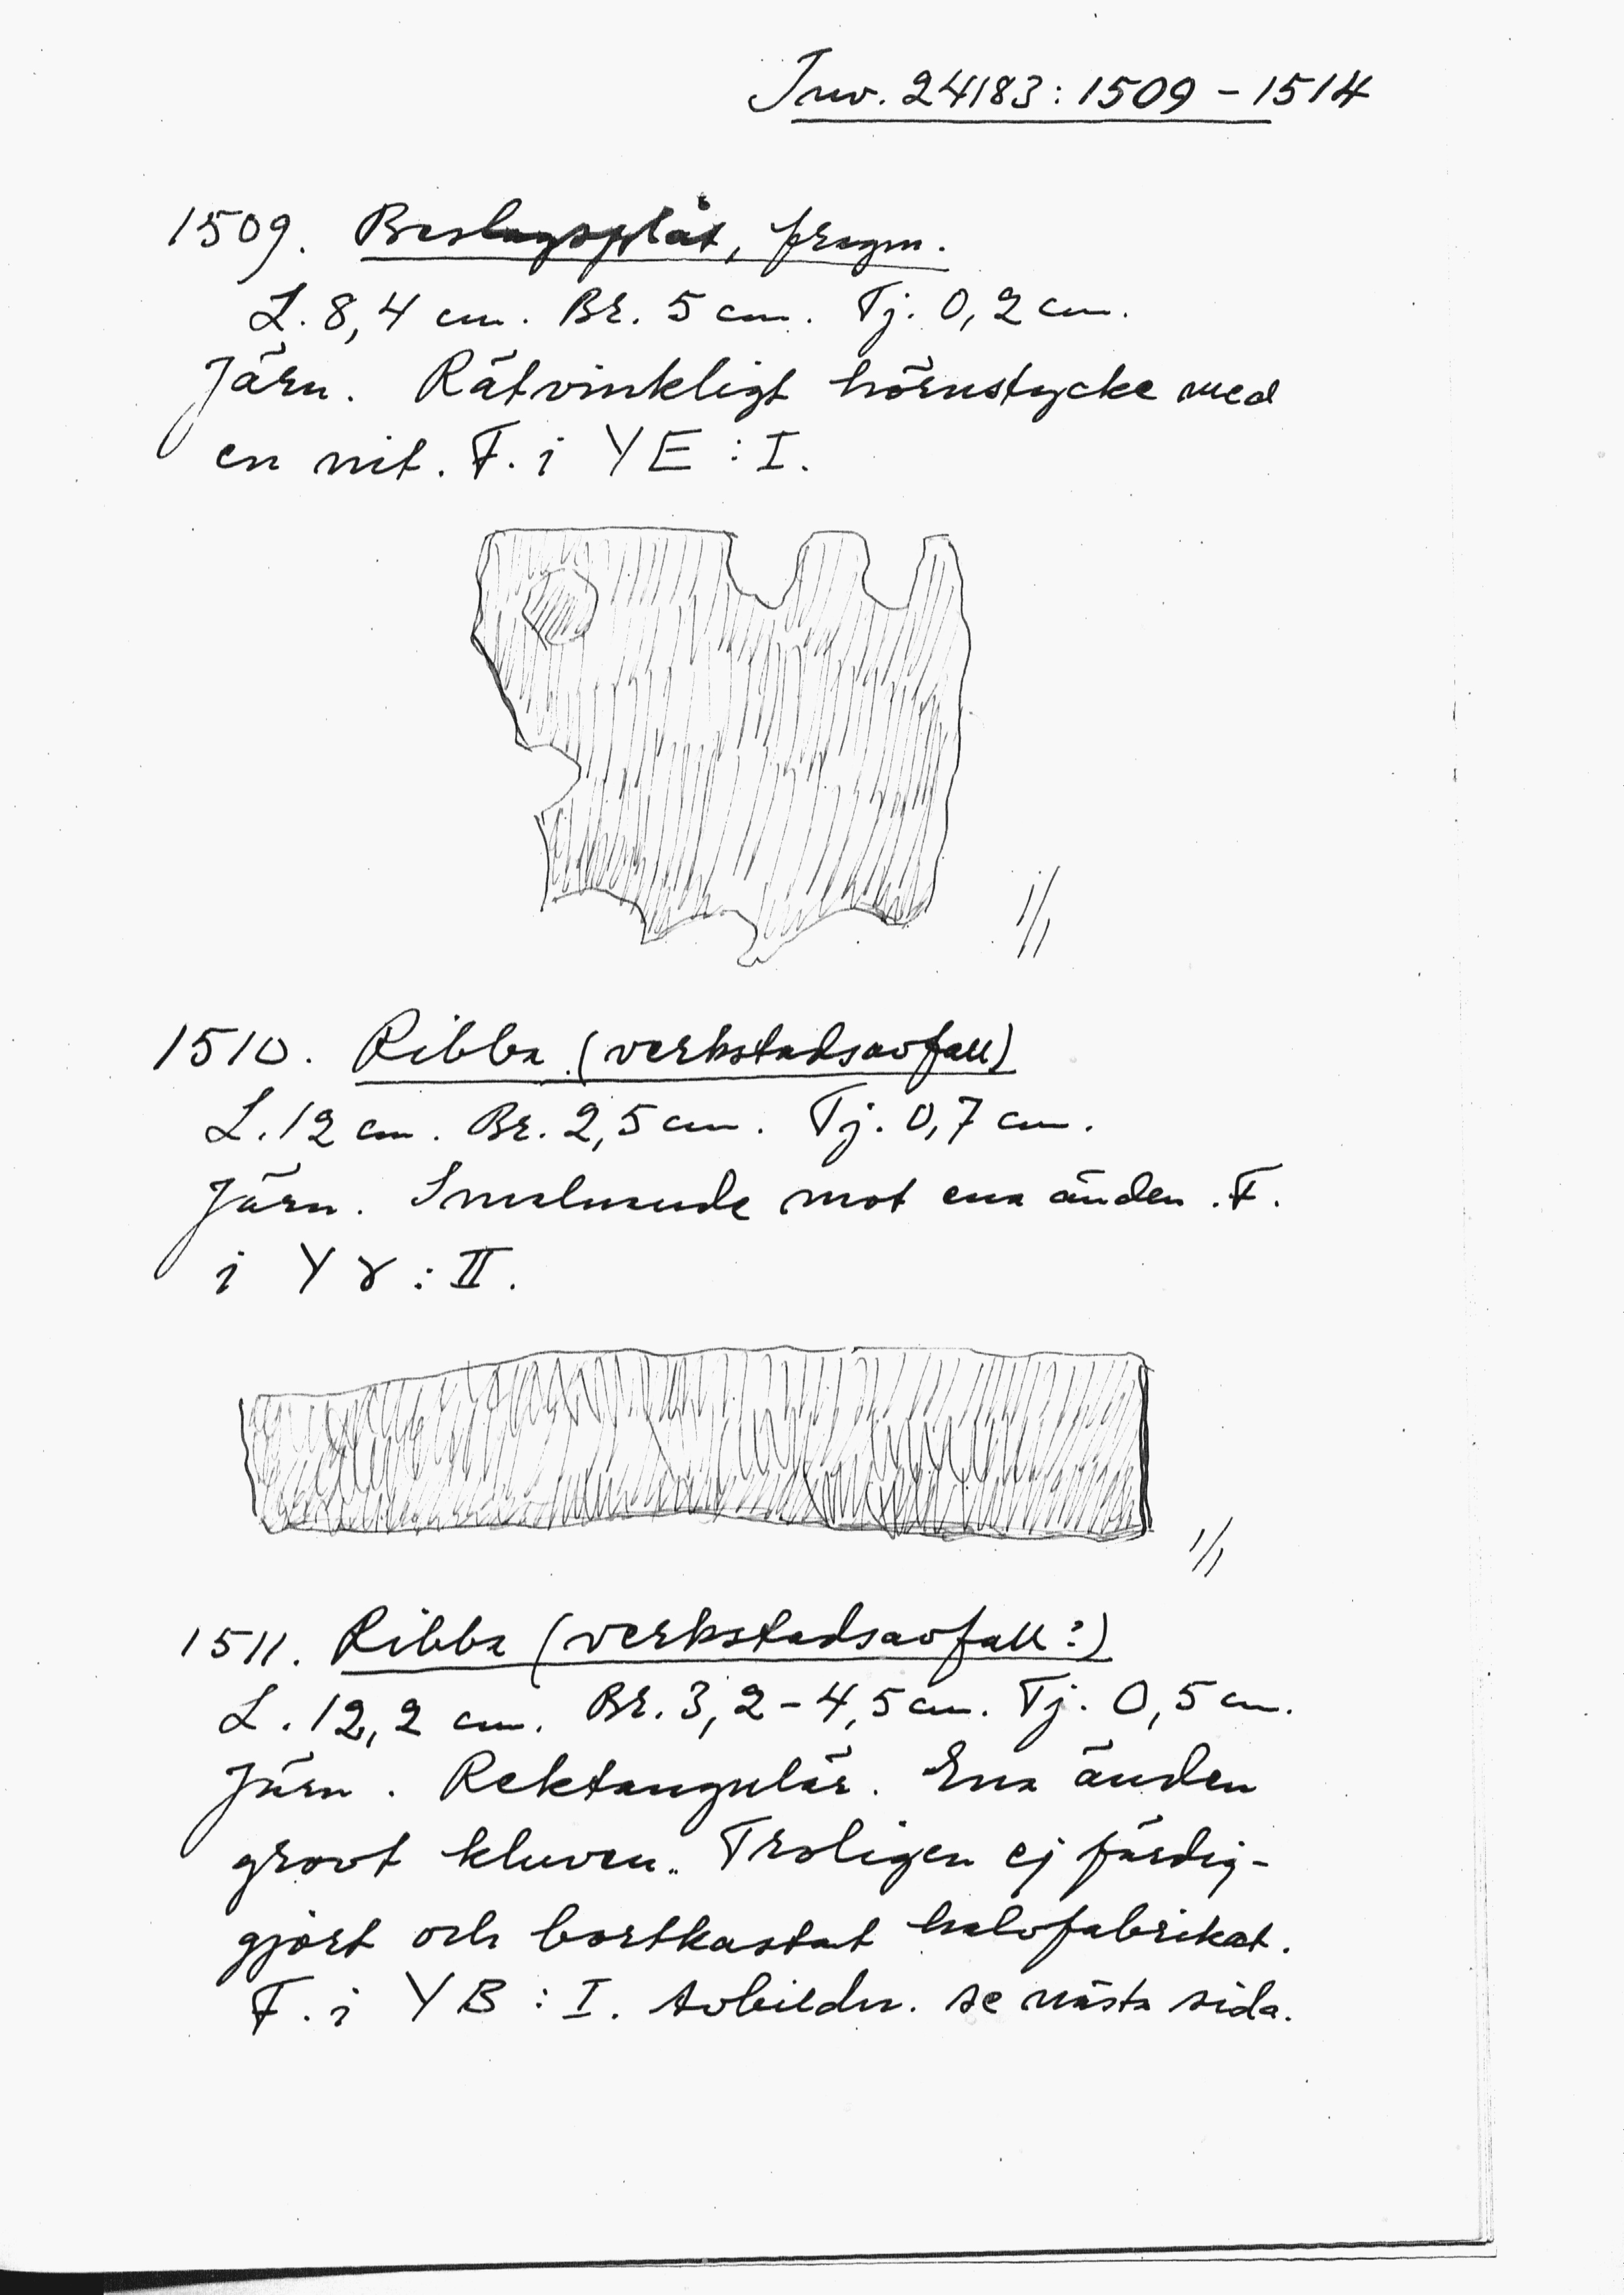 Inv. 24183:1509-1514
1509. Beslagsplåt, fragm.
L. 8,4 cm. Br. 5 cm. Tj. 0,2 cm.
Järn. Rätvinkligt hörnstycke med
en nit. F. i YE:I.
1/1
1510. Ribba (verkstadsavfall)
L. 12 cm. Br. 2,5 cm. Tj. 0,7 cm.
Järn. Smalnande mot ena änden. F.
i Yγ:II.
1/1
1511. Ribba (verkstadsavfall?)
L. 12,2 cm. Br. 3,2-4,5 cm. Tj. 0,5 cm.
Järn. Rektangulär. Ena änden
grovt kluven. Troligen ej färdig-
gjort och bortkastat halvfabrikat.
F. i YB:I. Avbildn. se nästa sida.